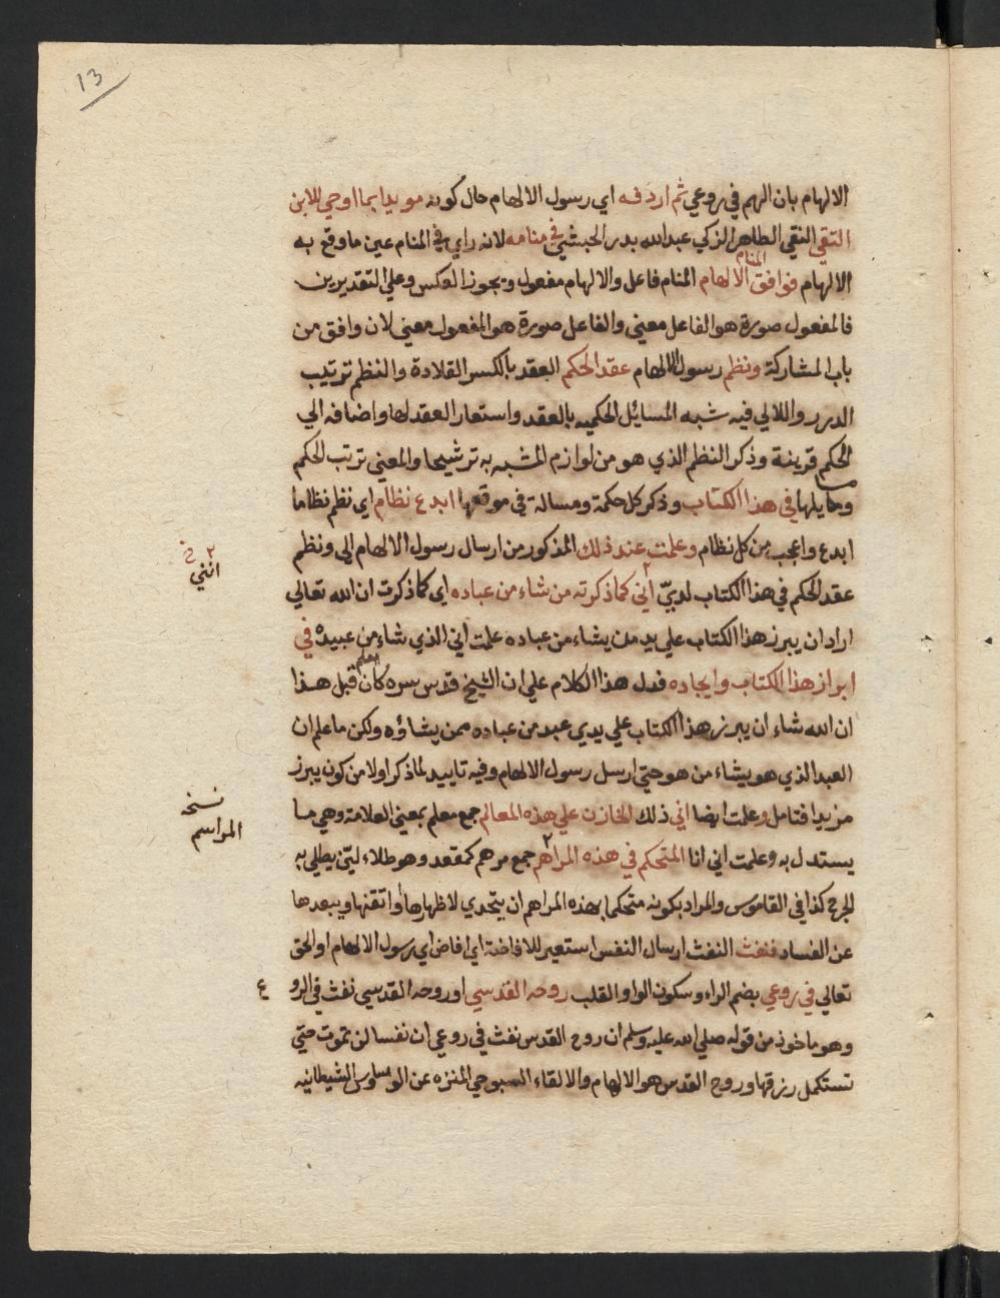 13
الالهام بان الهم في روعي ثم اردفه اي رسول الالهام حال كونه مويدا بما اوحي للابن
التقي النقي الطاهر الزكي عبدالله بدر الحبشي في منامه لانه راي في المنام عين ما وقع به
الالهام فوافق المنام الالهام المنام فاعل والالهام مفعول ويجوز العكس وعلي التقديرين
فالمفعول صورة هو الفاعل معني والفاعل صورة هو المفعول معني لان وافق من
باب المشاركة ونظم رسول الالهام عقد الحكم العقد بالكسر القلادة والنظم ترتيب
الدرر واللالي فيه شبه المسائل الحكميه بالعقد واستعار العقد لها واضافه الي
الحكم قرينة وذكر النظم الذي هو من لوازم المشبه به ترشيحا والمعني ترتب الحكم
وما يلها في هذا الكتاب وذكر كل حكمة ومسالة في موقعها ابدع نظام اي نظم نظاما
ابدع واعجب من كل نظام وعلمت عند ذلك المذكور من ارسال رسول الالهام الي ونظم
٢ خ
انني
عقد الحكم في هذا الكتاب لديّ ٢ اني كما ذكرته من شاء من عباده اي كما ذكرت ان الله تعالي
اراد ان يبرز هذا الكتاب علي يد من يشاء من عباده علمت اني الذي شاء من عبيده في
ابراز هذا الكتاب وايجاده فدل هذا الكلام علي ان الشيخ قدس سره كان يعلم قبل هذا
ان الله شاء ان يبرز هذا الكتاب علي يدي عبد من عباده ممن يشاؤه ولكن ما علم ان
العبد الذي هو يشاء من هو حتي ارسل رسول الالهام وفيه تاييد لما ذكر اولا من كون يبرز
مزيدا فتامل وعلمت ايضا اني ذلك الخازن علي هذه المعالم جمع معلم بمعني العلامة وهي ما
نسخه
المراسم
يستدل به وعلمت اني انا المتحكم في هذه المراهم ٢ جمع مرهم كمقعد وهو طلاء ليّن يطلي به
الجرح كذا في القاموس والمراد بكونه متحكما بهذه المراهم ان يتحدي لاظهارها واتقنها ويبعدها
عن الفساد فنفث النفث ارسال النفس استعير للافاضة اي افاض اي رسول الالهام او الحق
تعالي في روعي بضم الراء وسكون الواو القلب روحه القدسي او روحه القدسي نفث في الرو
ع
وهو ماخوذ من قوله صلي الله عليه وسلم ان روح القدس نفث في روعي ان نفسا لن تموت حتي
تستكمل رزقها وروح القدس هو الالهام والالقاء السبوحي المنزه عن الوساوس الشيطانيه